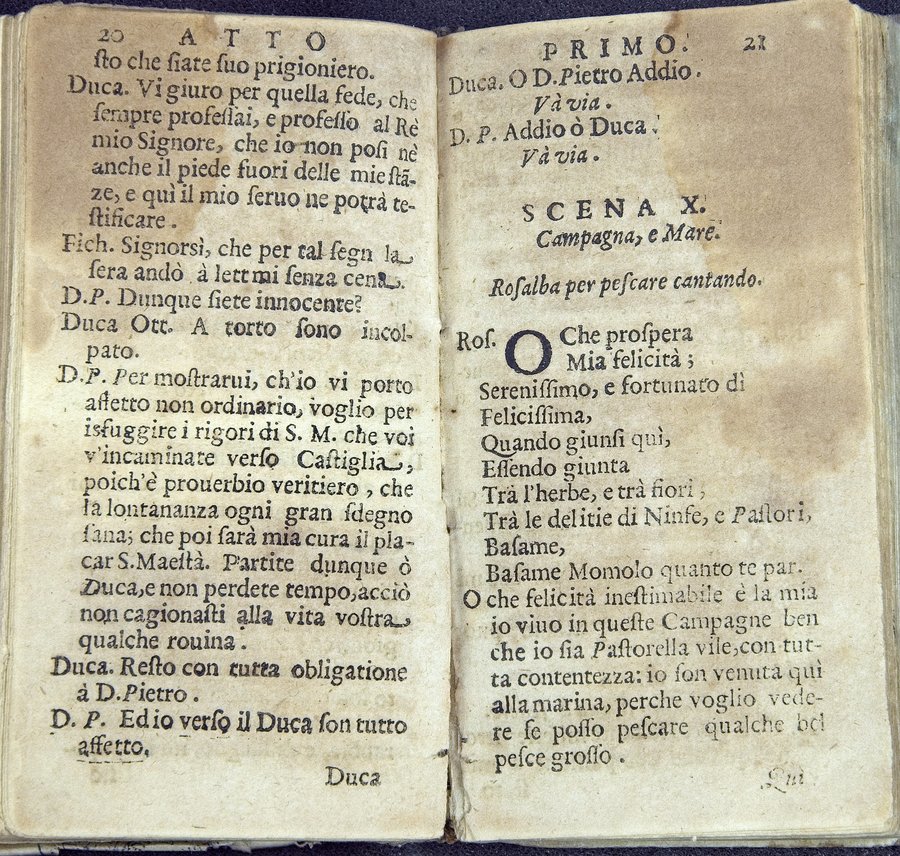 20 A T T O
ſto che ſiate ſuo prigioniero.
Duca. Vi giuro per quella fede, che
ſempre profeſſai, e profeſſo al Rè
mio Signore, che io non poſi nè
anche il piede fuori delle mie ſtã-
ze, e quì il mio ſeruo ne potrà te-
ſtificare.
Fich. Signorsì, che per tal ſegn la
ſera andò à lettmi ſenza cena.
D.P. Dunque ſiete innocente?
Duca Ott. A torto ſono incol-
pato.
D.P. Per moſtrarui, ch'io vi porto
affetto non ordinario, voglio per
isfuggire i rigori di S. M. che voi
v'incaminate verſo Caſtiglia,
poich'è prouerbio veritiero, che
la lontananza ogni gran ſdegno
ſana; che poi ſarà mia cura il pla-
car S. Maeſtà. Partite dunque ò
Duca, e non perdete tempo, acciò
non cagionaſti alla vita voſtra
qualche rouina.
Duca. Reſto con tutta obligatione
à D. Pietro.
D. P. Ed io verſo il Duca ſon tutto
affetto.
Duca
P R I M O. 21
Duca. O D. Pietro Addio.
Và via.
D. P. Addio ò Duca.
Và via.
S C E N A X.
Campagna, e Mare.
Roſalba per peſcare cantando.
Roſ. O Che proſpera
Mia felicità;
Sereniſſimo, e fortunato dì
Feliciſſima,
Quando giunſi quì,
Eſſendo giunta
Trà l'herbe, e trà fiori;
Trà le delitie di Ninfe, e Paſtori,
Baſame,
Baſame Momolo quanto te par.
O che felicità ineſtimabile è la mia
io viuo in queſte Campagne ben
che io ſia Paſtorella vile, con tut-
ta contentezza: io ſon venuta quì
alla marina, perche voglio vede-
re ſe poſſo peſcare qualche bel
peſce groſſo.
Quì